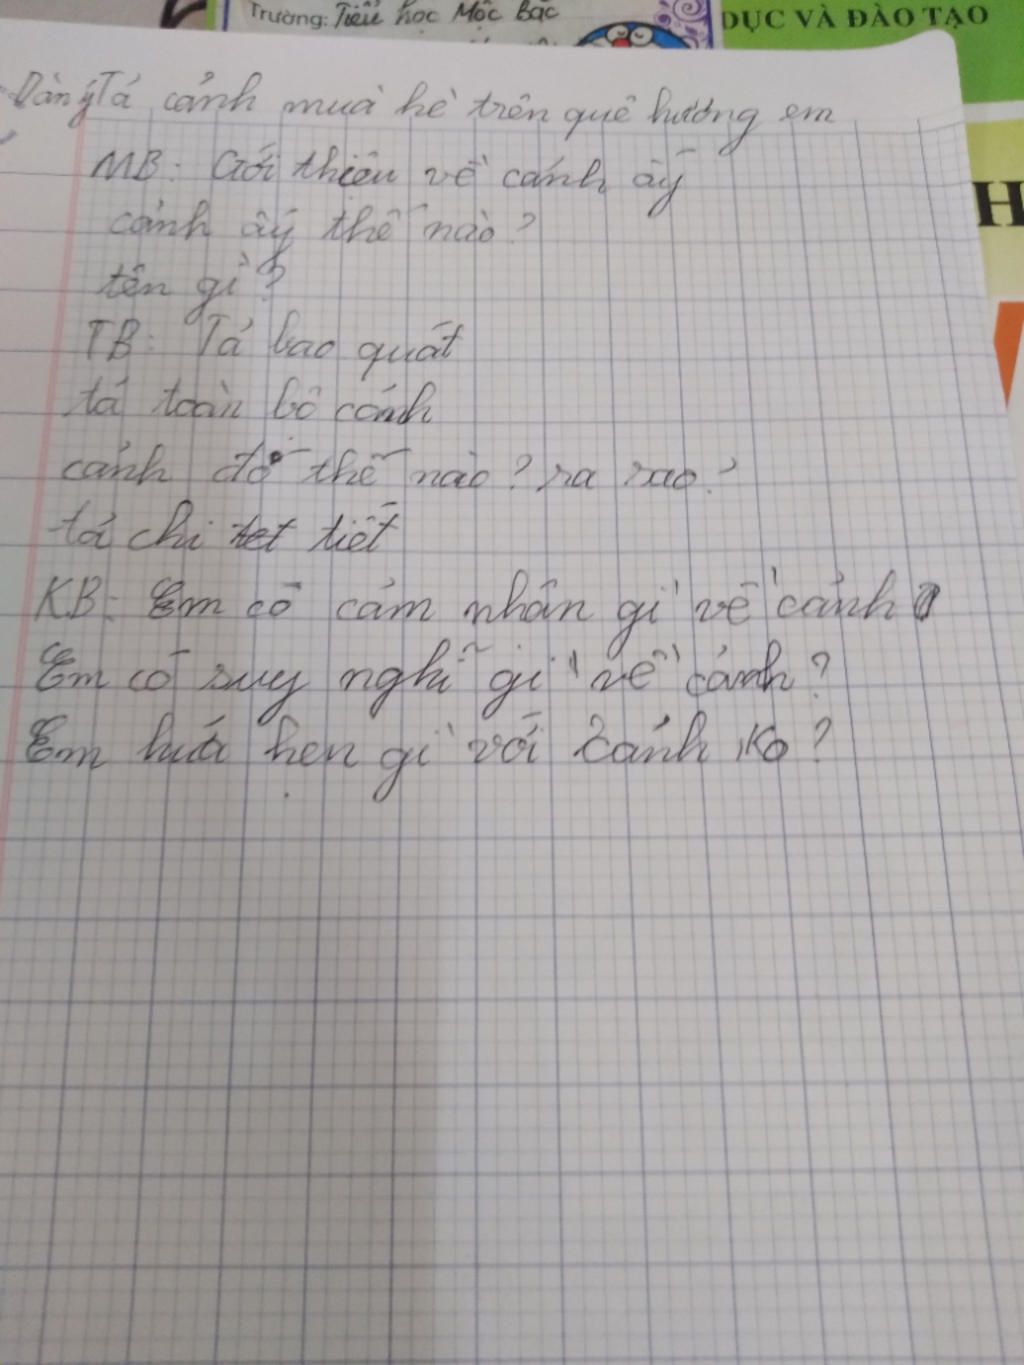 Trường: Tiểu học Mộc Bắc
DỤC VÀ ĐÀO TẠO
H
Dàn ý Tả cảnh muà hè trên quê hương em
MB: Giới thiêu về cảnh ây
cảnh ây thế nào?
tên gì?
TB: Tả bao quát
tả toàn bô cảnh
cảnh đó thế nào? ra rao?
tả chi tet tiết
KB: Em có cảm nhân gì về cảnh
Em có suy nghĩ gì về cảnh?
Em hứa hẹn gì với cảnh ko?